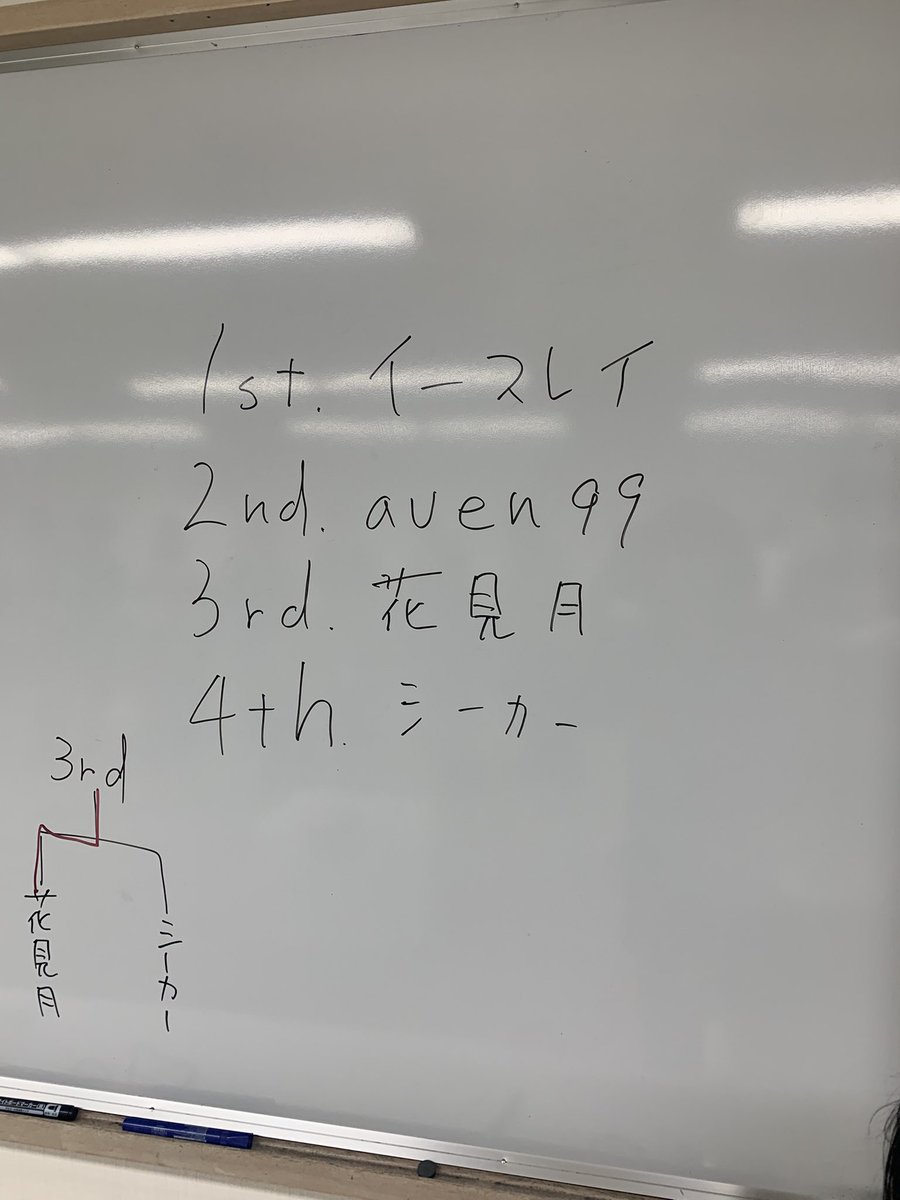 1st. イースレイ
2nd. aven99
3rd. 花見月
4th. シーカー
3rd
花見月
シーカー